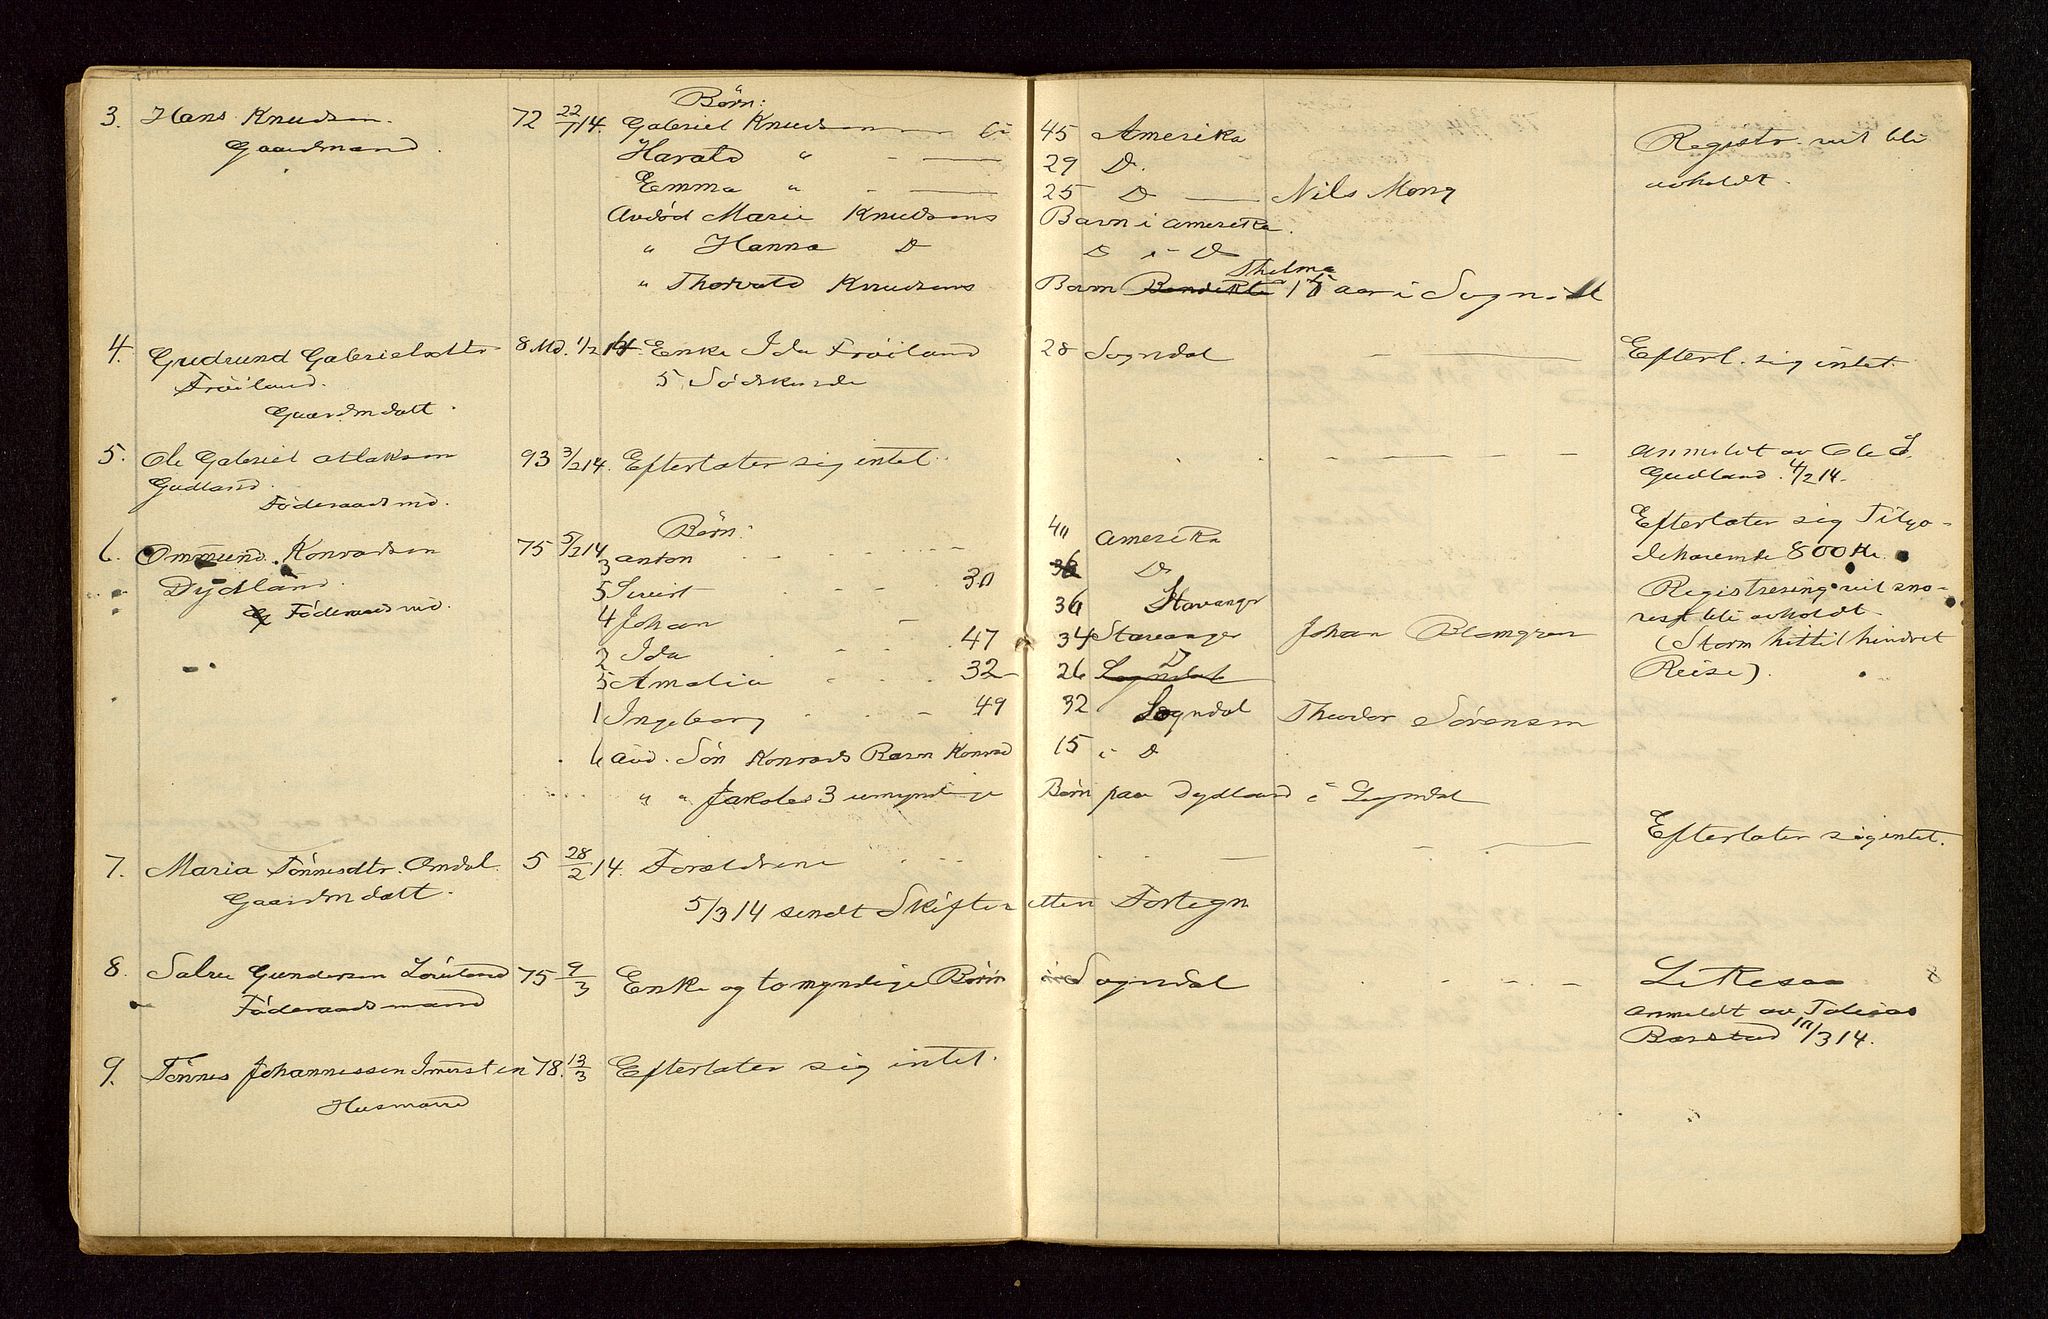 3. Hans Knudsen. 72 22/7 14. Börn:
Gaardmand. Gabriel Knudsen 45 Amerika Registr. vil bli
Harald " - — 29 D. avholdt.
Emma " - — 25 D — Nils Mong
Avdöd Marie Knudsens Barn i Amerika.
" Hanna D D i D
" Thorvald Knudsens Barn Thelma aar i Sogndal
4. Gudrund Gabrielsdtr 8 Md. 1/2 14. Enke Ida Fröiland 28 Sogndal - — Efterl. sig intet.
Fröiland. 5 Södskende
Gaardmdatt.
5. Ole Gabriel Atlaksen 93 3/2 14. Efterlater sig intet. Anmeldt av Ole
Gudland. Gudland. 4/2 14.
Föderaadsmd.
6. Ommund Konradsen 75 5/2 14 Börn: Efterlater sig Tilgo-
Dydland. 3 Anton 40 Amerika dehavende 800 Kr.
Föderaadsmd. 5 Sivert 30 36 D Registrering vil sna-
4 Johan 36 Stavanger rest bli avholdt
2 Ida 47 34 Stavanger Johan Blomgren (Storm hittil hindret
5 Amalia 32 26 Sogndal D Reise).
1 Ingeborg 49 32 Sogndal Theodor Sörensen
6 avd. Sön Konrads Barn Konrad 15 i D
" " Jakobs 3 umyndige Börn paa Dydland i Sogndal
7. Maria Tönnesdtr. Omdal 5 28/2 14. Forældrene Efterlater sig intet.
Gaardmdatt. 5/3 14 sendt Skifteretten Fortegn
8. Salve Gundersen 75 9/3 Enke og to myndige Börn i Sogndal
Föderaadsmand Anmeldt av Tobias
Barstad 10/3 14.
9. Tönnes Johannessen 78. 13/3 Efterlater sig intet.
Husmand